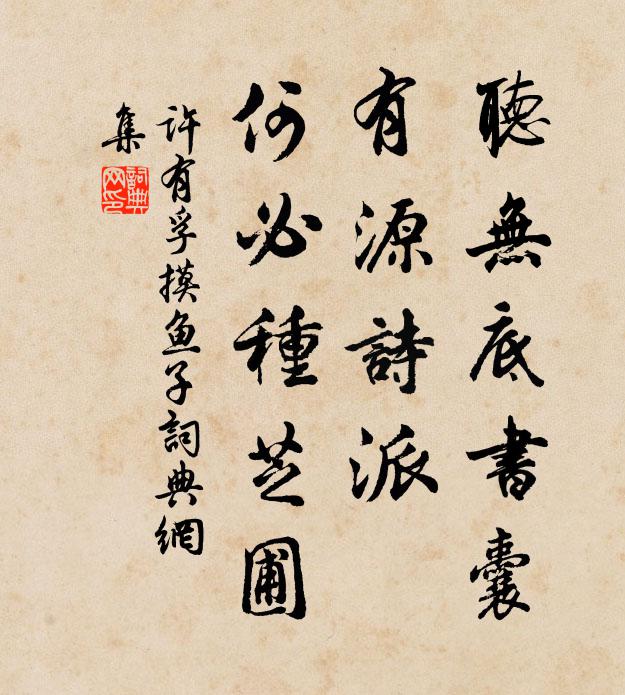 聽無底書囊
有源詩派
何必種芝圃
許有孚摸鱼子詞典網
集
詞典
网印